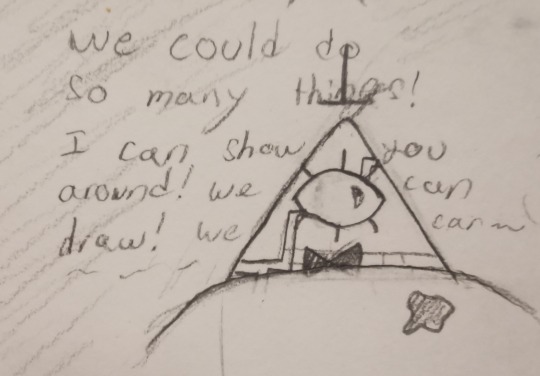 we could do
so many things!
I can show you
around! we can
draw! we can~